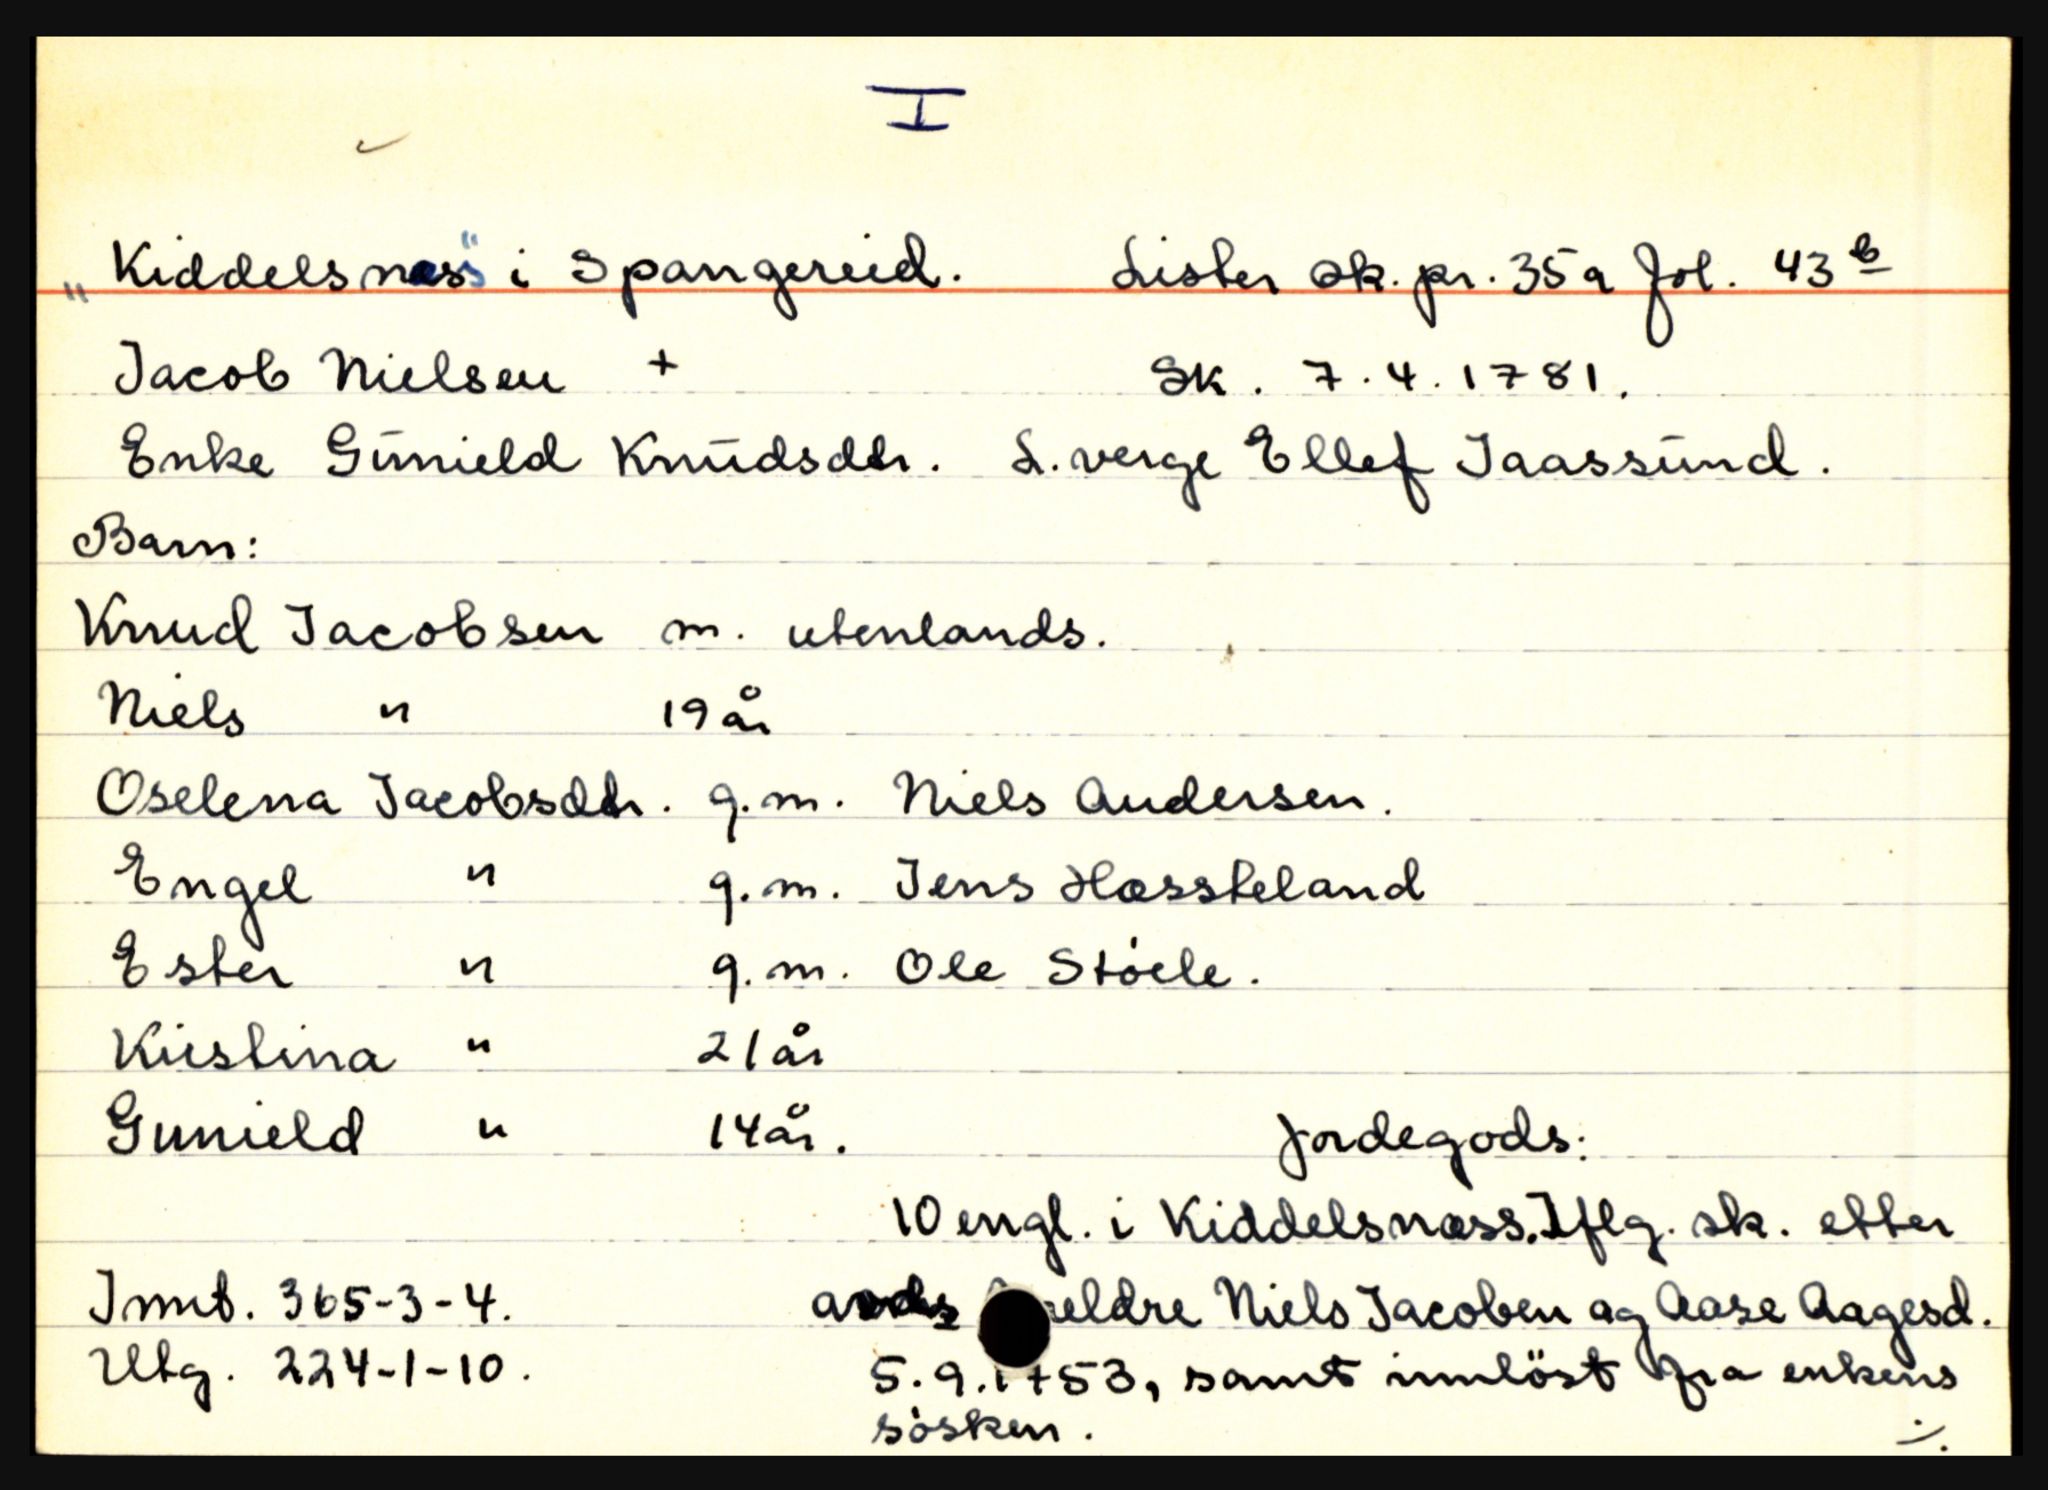 I
"Kiddelsnæs" i Spangereid. Lister sk. pr. 35a fol. 43 b
Jacob Nielsen + Sk. 7.4.1781.
Enke Gŭnield Knŭdsdtr. L. verge Ellef Jaassŭnd.
Barn:
Knud Jacobsen m. utenlands.
Niels " 19 år
Oselena Jacobsdtr. g.m. Niels Andersen.
Engel " g.m. Jens Hæssteland
Ester " g.m. Ole Stóele.
Kristina " 21 år
Gunield " 14 år. Jordegods:
10 engl. i Kiddelsnæss. Iflg. sk. etter
Innt. 365-3-4. eldre Niels Jacoben og Aase Aagesd.
Utg. 224-1-10. 5.9.1753, samt innlöst fra enkens
sósken. ./.